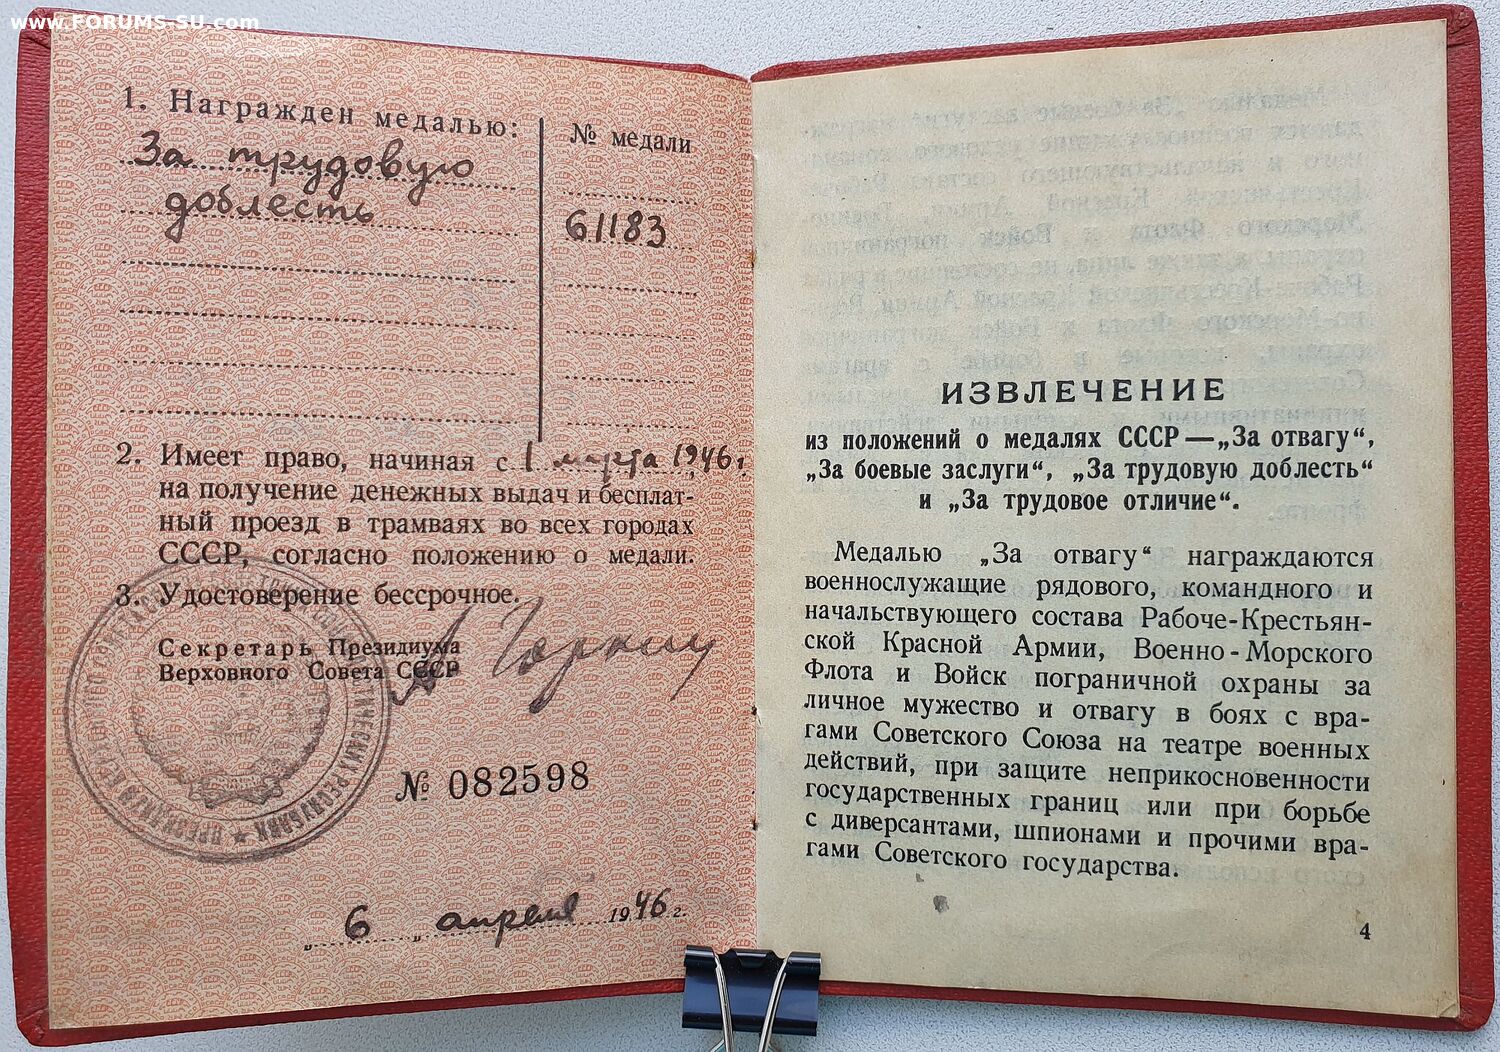 www.FORUMS-SU.com
1. Награжден медалью:
№ медали
За трудовую
доблесть
61183
2. Имеет право, начиная с 1 марта 1946 г
на получение денежных выдач и бесплат-
ный проезд в трамваях во всех городах
СССР, согласно положению о медали.
3. Удостоверение бессрочное.
Секретарь Президиума
Верховного Совета СССР
№ 082598
„ 6 „ апреля 1946 г.
ИЗВЛЕЧЕНИЕ
из положений о медалях СССР — „За отвагу“,
„За боевые заслуги“, „За трудовую доблесть“
и „За трудовое отличие“.
Медалью „За отвагу“ награждаются
военнослужащие рядового, командного и
начальствующего состава Рабоче-Крестьян-
ской Красной Армии, Военно-Морского
Флота и Войск пограничной охраны за
личное мужество и отвагу в боях с вра-
гами Советского Союза на театре военных
действий, при защите неприкосновенности
государственных границ или при борьбе
с диверсантами, шпионами и прочими вра-
гами Советского государства.
4